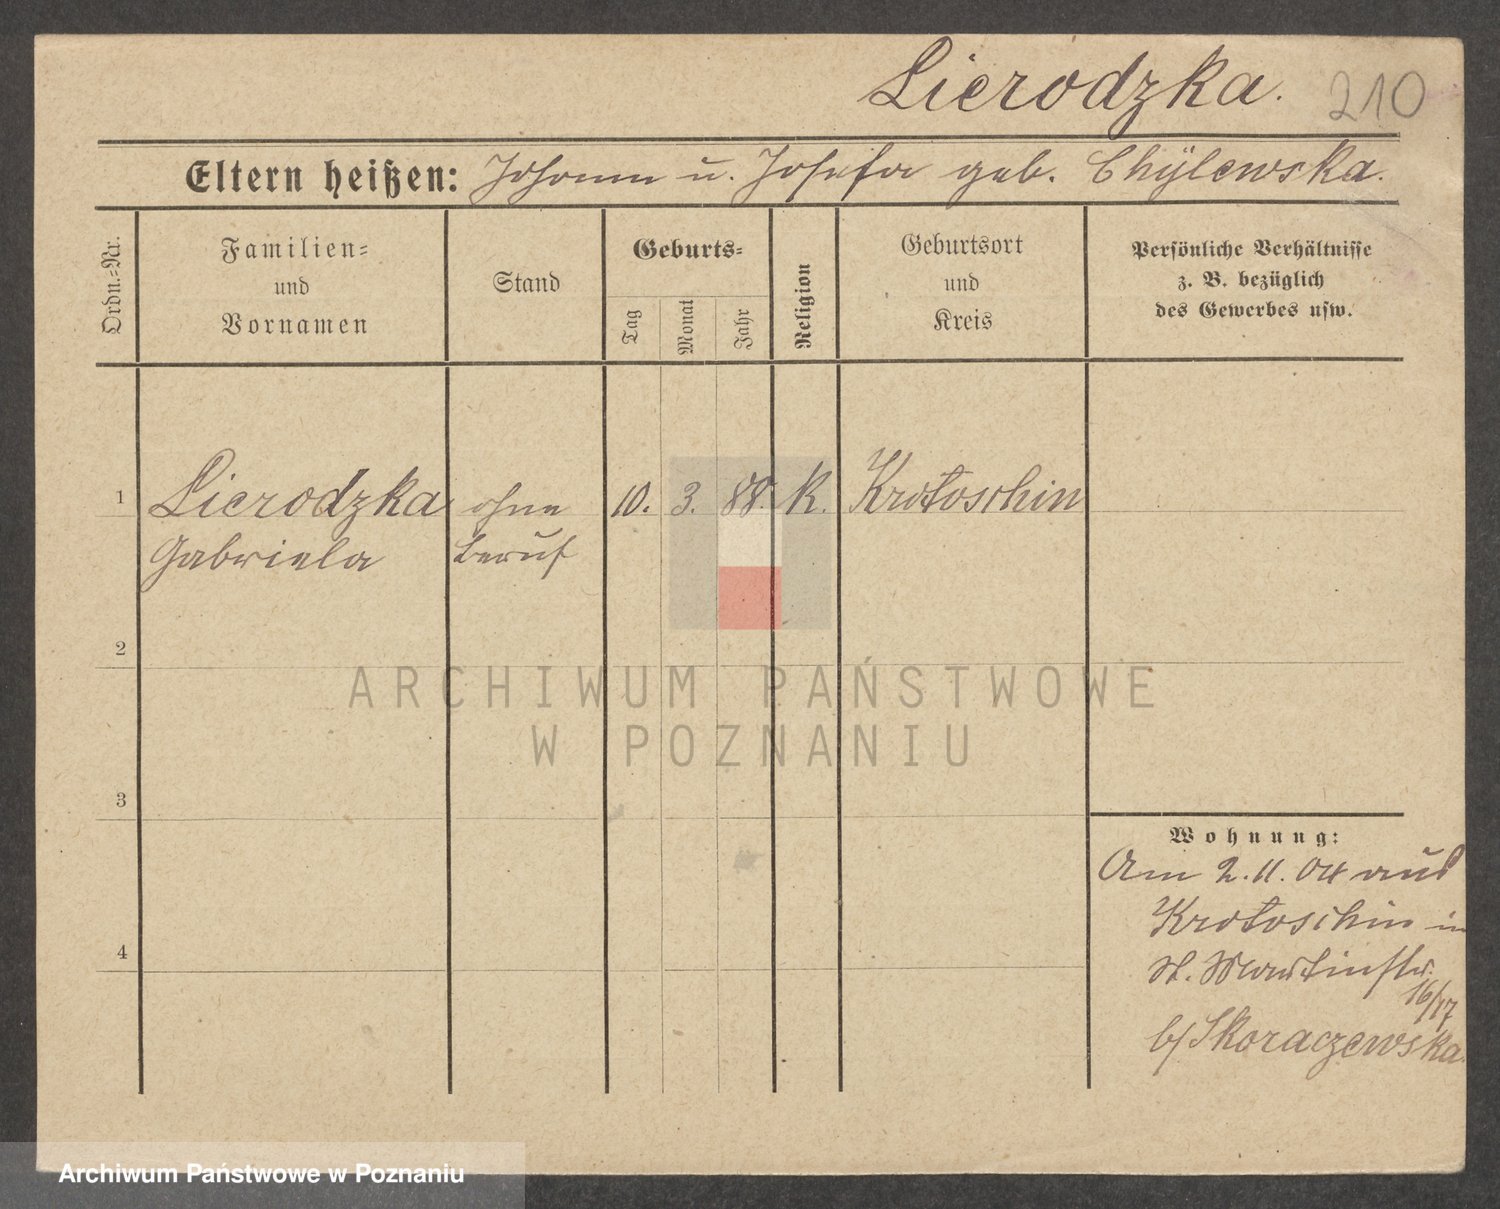 Lierodzka. 210
Eltern heißen: Johann u. Josefa geb. Chÿlewska.
Ordn.=Nr.
Familien=
und
Vornamen
Stand
Geburts=
Tag
Monat
Jahr
Religion
Geburtsort
und
Kreis
Persönliche Verhältnisse
z. B. bezüglich
des Gewerbes usw.
1 Lierodzka ohne 10. 3. 88. K. Krotoschin
Gabriela beruf
2
ARCHIWUM PAŃSTWOWE
W POZNANIU
3
Wohnung:
Am 2.11.04 aus
Krotoschin in
4
St. Martinstr.
16/17
b/Skoraczewska.
Archiwum Państwowe w Poznaniu